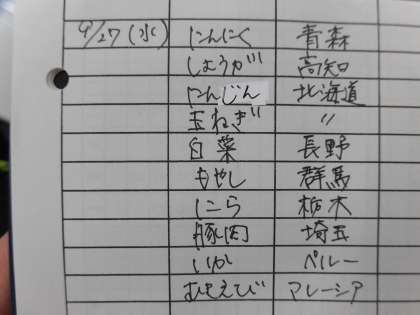 9/27(水) にんにく 青森
しょうが 高知
にんじん 北海道
玉ねぎ 〃
白菜 長野
もやし 群馬
にら 栃木
豚肉 埼玉
いか ペルー
むきえび マレーシア